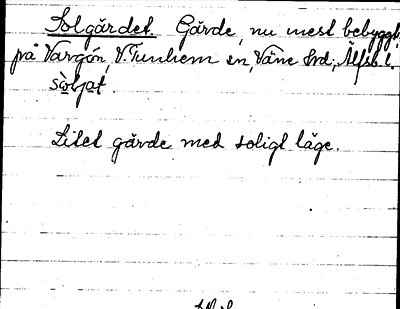 Solgärdet. Gärde, nu mest bebyggt,
på Vargön, V. Tunhem sn, Väne hd, Älfsb. l.
sòljat.
Litet gärde med soligt läge.